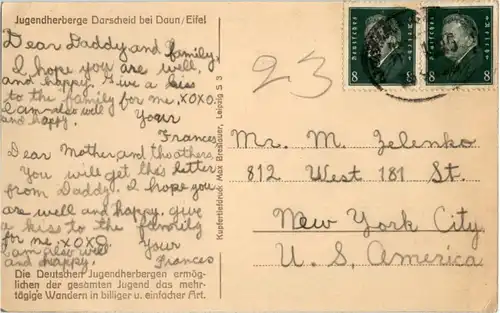 Jugendherberge Darscheid bei Daun/Eifel
Dear Daddy and family,
I hope you are well,
and happy. Give a kiss
to the family for me, XOXO.
I am also well
and happy. Your
Frances
Dear Mother and the others,
You will get this letter
from Daddy. I hope you
are well and happy, give
a kiss to the family
for me, XOXO.
I am also well Your
and happy. Frances
Die Deutschen Jugendherbergen ermög-
lichen der gesamten Jugend das mehr-
tägige Wandern in billiger u. einfacher Art.
Kupfertiefdruck Max Breslauer, Leipzig S 3
23
Deutsches Reich
8 8
Deutsches Reich
8 8
Mr. M. Zelenko
812 West 181 St.
New York City
U. S. America